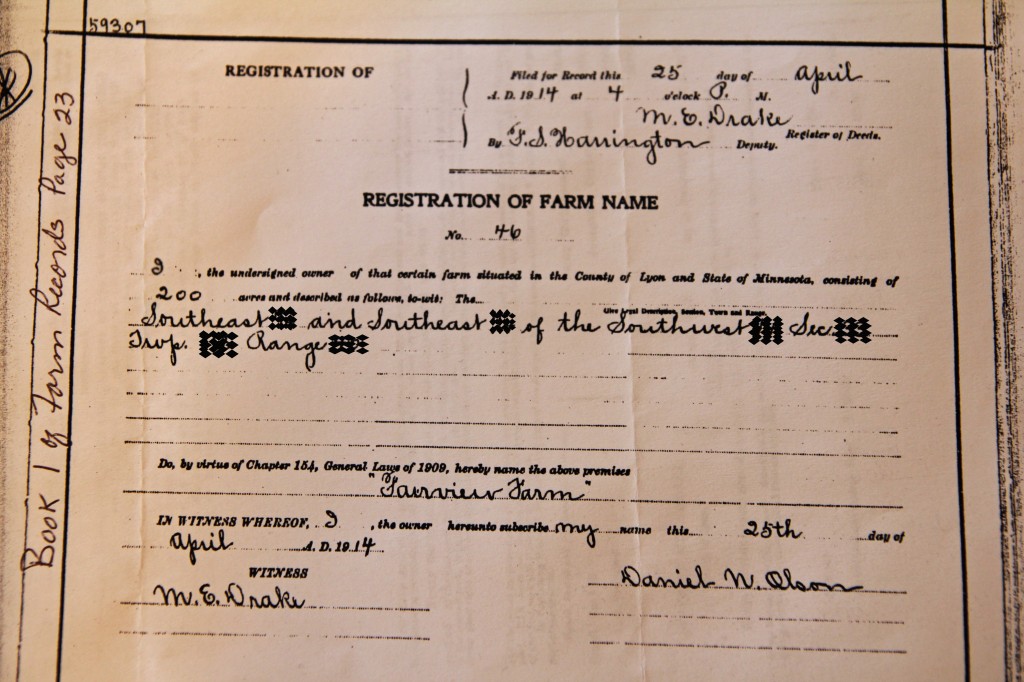 59307
REGISTRATION OF
Filed for Record this 25 day of April
A. D. 1914 at 4 o'clock P. M.
M. E. Drake
Register of Deeds.
By F. S. Harrington Deputy.
REGISTRATION OF FARM NAME
No. 46
I, the undersigned owner of that certain farm situated in the County of Lyon and State of Minnesota, consisting of
200 acres and described as follows, to-wit: The
Give Legal Description, Section, Town and Range.
Southeast and Southeast of the Southwest Sec
Twp. Range
Do, by virtue of Chapter 154, General Laws of 1909, hereby name the above premises
"Fairview Farm"
IN WITNESS WHEREOF, I, the owner hereunto subscribe my name this 25th day of
April A. D. 1914
WITNESS
Daniel W. Olson
M. E. Drake
Book 1 of Farm Records Page 23